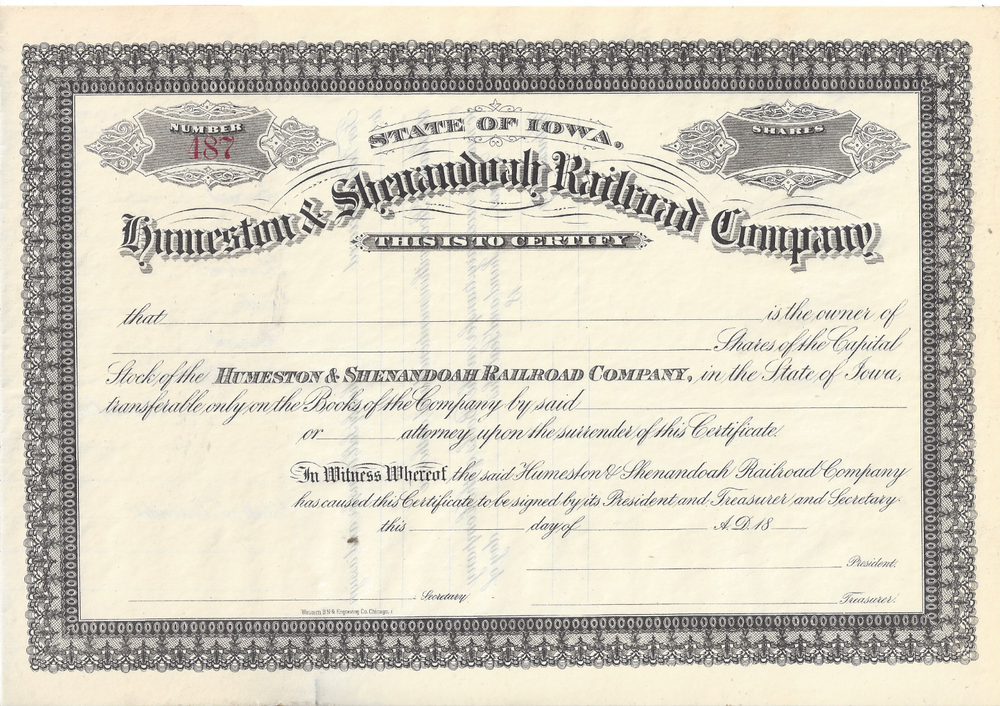 NUMBER
487
STATE OF IOWA.
SHARES
Humeston & Shenandoah Railroad Company
THIS IS TO CERTIFY
that is the owner of
Shares of the Capital
Stock of the HUMESTON & SHENANDOAH RAILROAD COMPANY, in the State of Iowa,
transferable only on the Books of the Company by said
or attorney upon the surrender of this Certificate.
In Witness Whereof, the said Humeston & Shenandoah Railroad Company
has caused this Certificate to be signed by its President and Treasurer and Secretary
this day of A.D. 18
President.
Secretary
Treasurer.
Western B N & Engraving Co. Chicago.